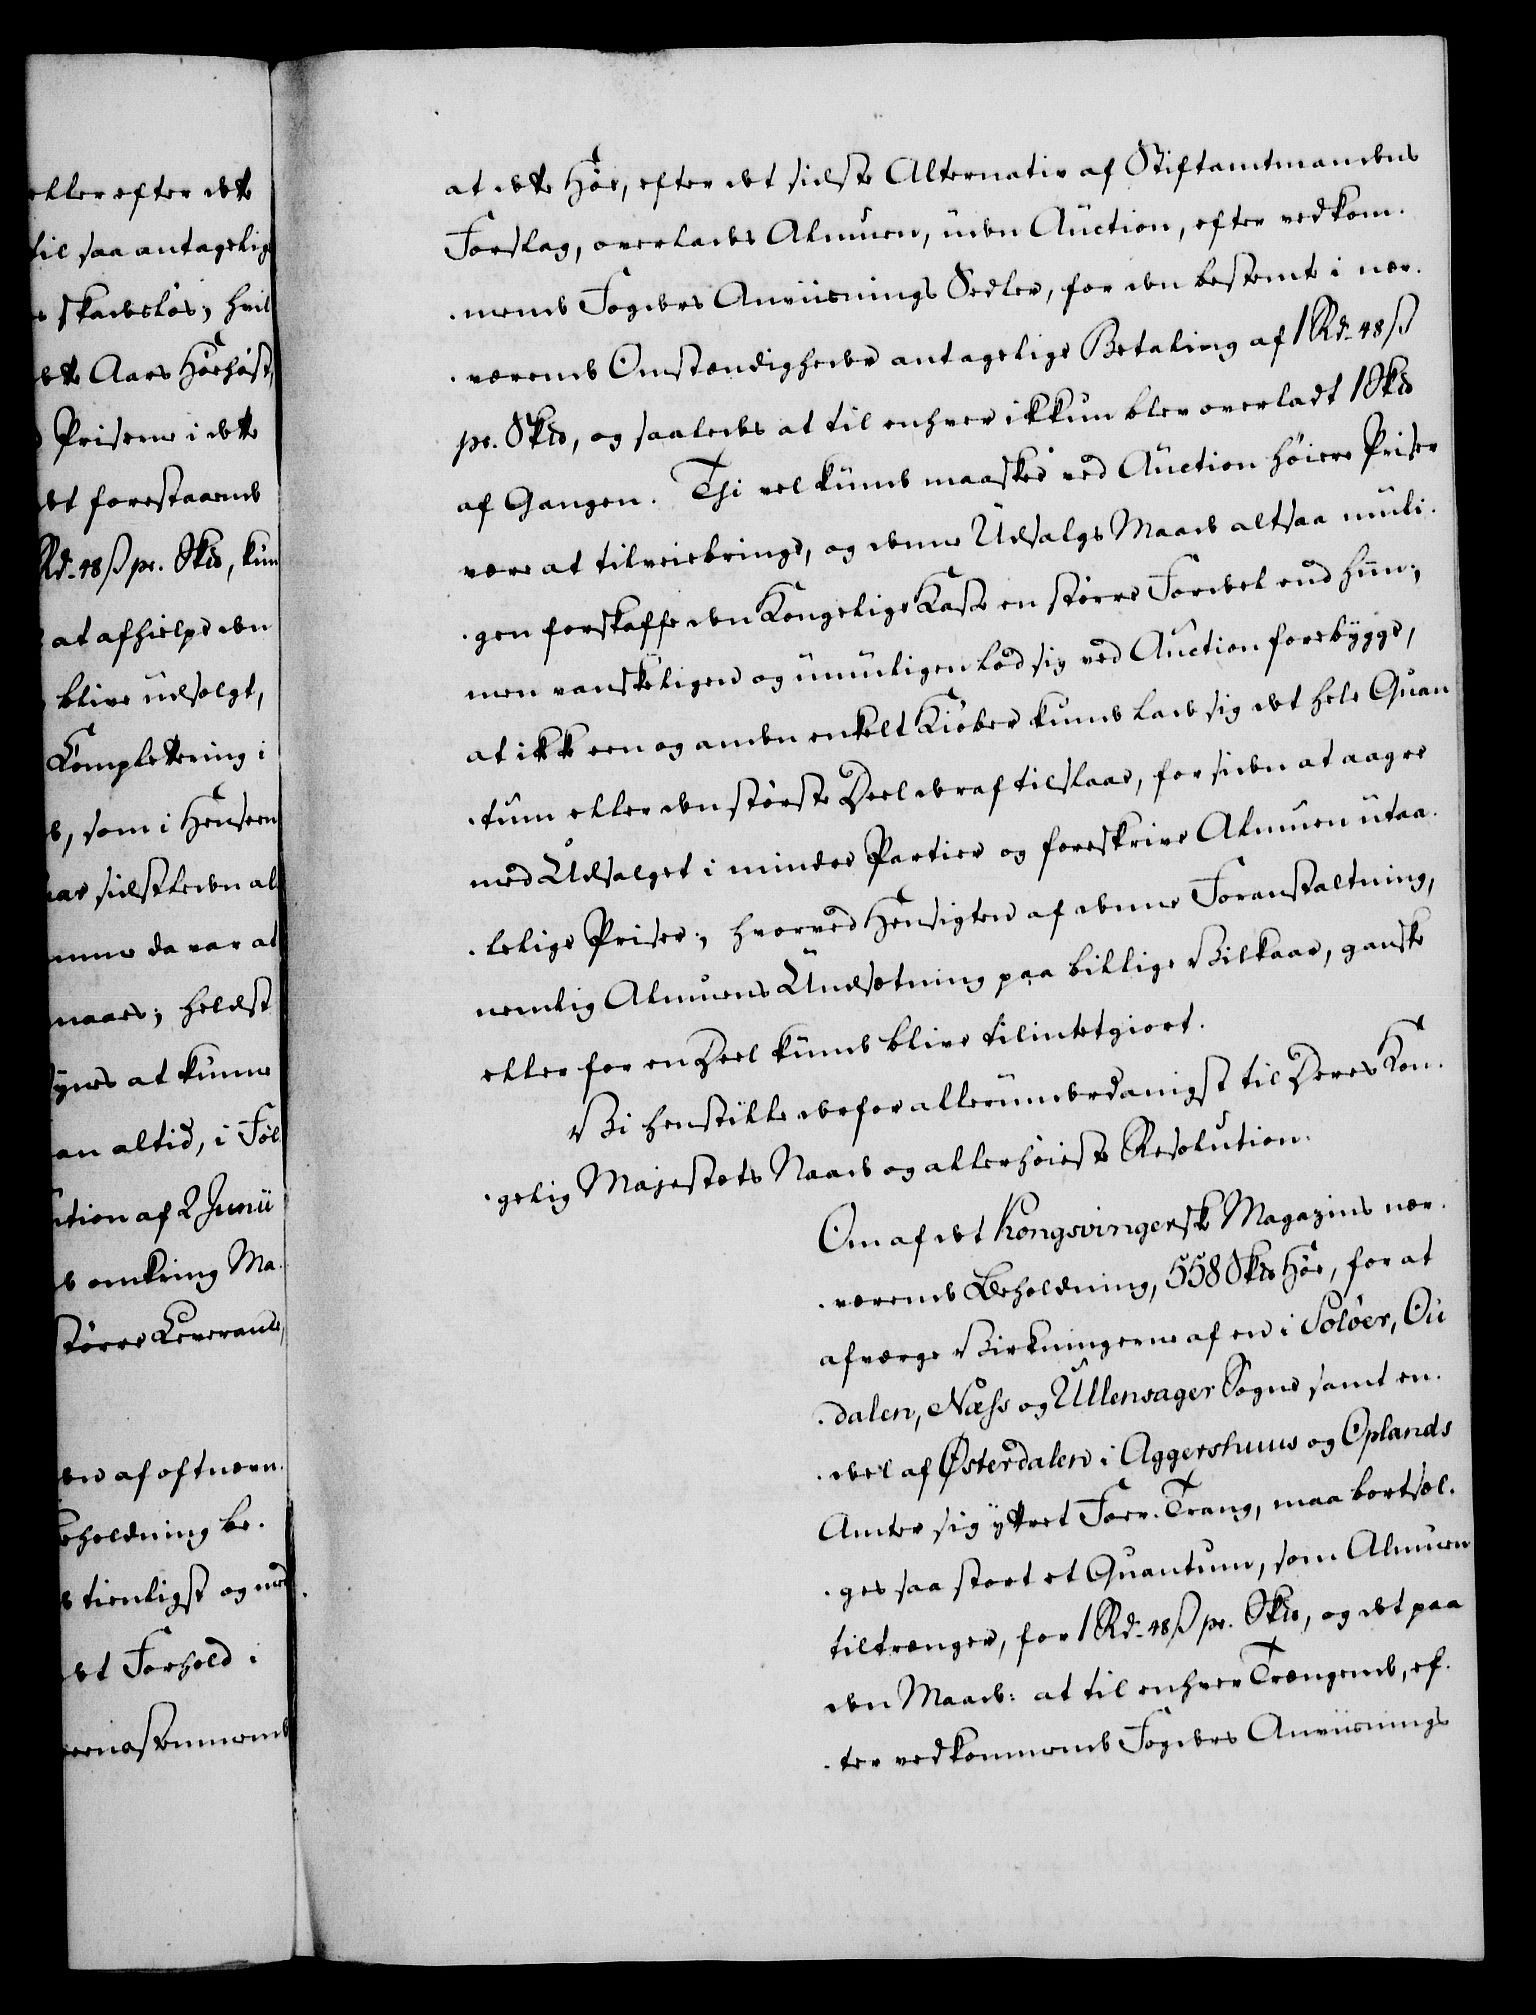 eller efter dette
til saa antagelig
skadesløs; hvil
dette Aars Høehøst,
Priserne i dette
det forestaaende
Rd. 48 ß pr. Skd, kun
at afhielpe den
blive udsolgt,
Completering i
som i Henseen
aar sidstleden al
da var at
naaes; heldst
synes at kunne
an altid, i Føl
ution af 2 Junii
omkring Ma-
større Leverance,
af oftnævn-
eholdning be-
tienligst og med
det Forhold i
eenstemmende
at dette Høe, efter det sidste Alternativ af Stiftamtmandens
Forslag, overlades Almuen, uden Auction, efter vedkom-
-mende Fogders Anviisnings Sedler, for den bestemte i nær-
-værende Omstændigheder antagelige Betaling af 1 Rd. 48 ß
pr. Skd, og saaledes at til enhver ikkun blev overladt 1 Skd
af Gangen. Thi vel kunde maaskee ved Auction høiere Priser
være at tilveiebringe, og denne Udsalgs Maade altsaa muli-
-gen forskaffe den Kongelige Kasse en større Fordeel end hiin;
men vanskeligen og umuligen lod sig ved Auction forebygge,
at ikke een og anden enkelt Kiøber kunde lade sig det hele Quan
-tum eller den største Deel deraf tilslaae, for siden at aagre
med Udsalget i mindre Partier og foreskrive Almuen utaa-
-lelige Priser; hvorved Hensigten af denne Foranstaltning,
nemlig Almuens Undsætning paa billige Vilkaar, ganske
eller for en Deel kunde blive tilintetgiort.
Vi henstille derfor allerunderdanigst til Deres Kon-
-gelig Majestæts Naade og allerhøieste Resolution:
Om af det Kongsvingerske Magazins nær-
-værende Beholdning, 558 Skd Høe, for at
afværge Virkningerne af en i Soløer, Ou
-dalen, Næss og Ullensager Sogne samt en-
-deel af Østerdalen i Aggershuus og Oplands
Amter sig yttret Foer-Trang, maa bortsæl-
-ges saa stort et Quantum, som Almuen
tiltrænger, for 1 Rd. 48 ß pr. Skd, og det paa
den Maade: at til enhver Trængende, ef-
-ter vedkommende Fogders Anviisnings